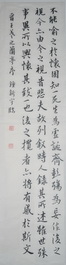 不能喻之於懷固知一死生為虛誕齊彭殤為妄作後之
視今亦由今之視昔悲夫故列敘時人錄其所述雖世殊
事異所以興懷其致一也後之攬者亦將有感於斯文
晉王羲之蘭亭序